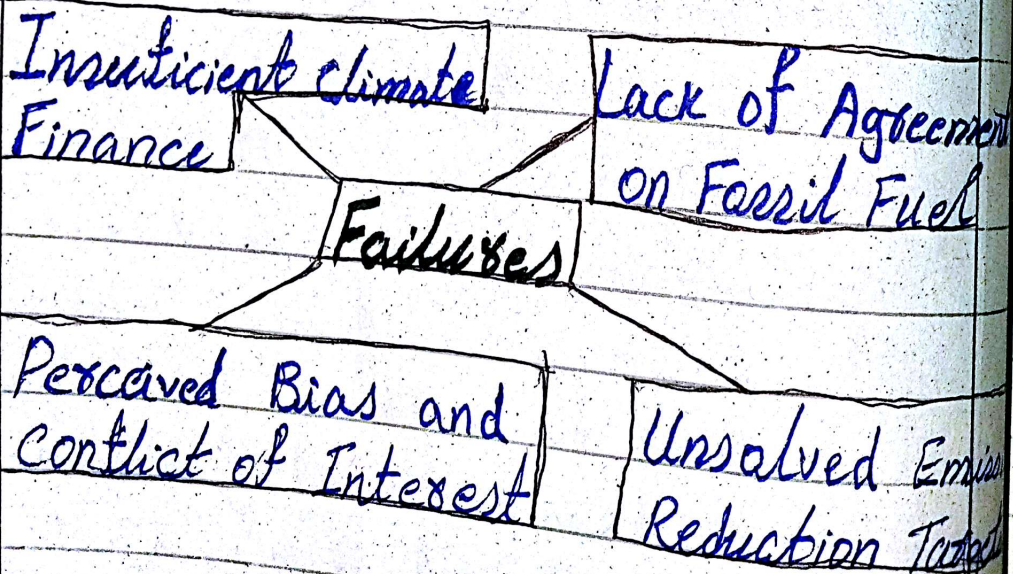 Insufficient climate
Finance
Lack of Agreement
on Fossil Fuel
Failures
Perceived Bias and
Conflict of Interest
Unsolved
Reduction